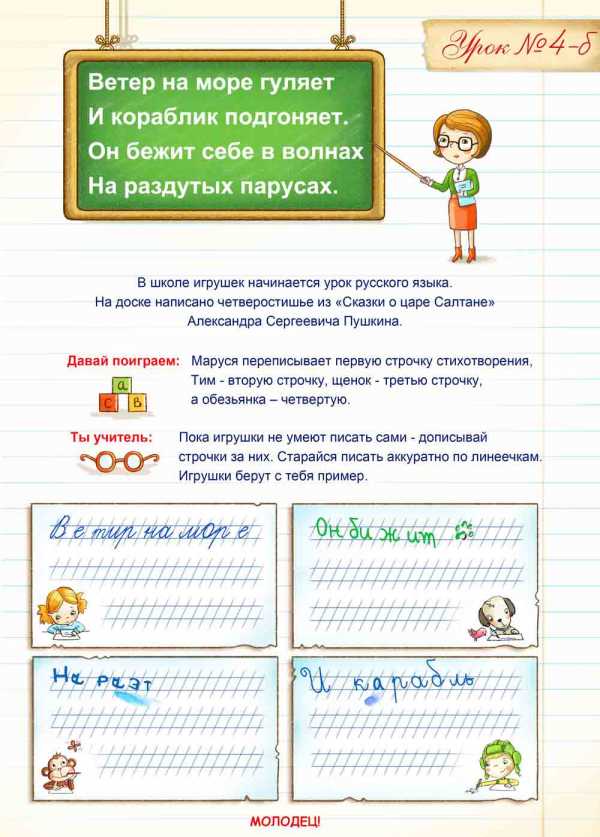 Урок №4-б
Ветер на море гуляет
И кораблик подгоняет.
Он бежит себе в волнах
На раздутых парусах.
В школе игрушек начинается урок русского языка.
На доске написано четверостишье из «Сказки о царе Салтане»
Александра Сергеевича Пушкина.
Давай поиграем: Маруся переписывает первую строчку стихотворения,
Тим - вторую строчку, щенок - третью строчку,
а обезьянка – четвертую.
а
с в
Ты учитель: Пока игрушки не умеют писать сами - дописывай
строчки за них. Старайся писать аккуратно по линеечкам.
Игрушки берут с тебя пример.
Ветир на море
Он бижит
На раэт
И карабль
МОЛОДЕЦ!